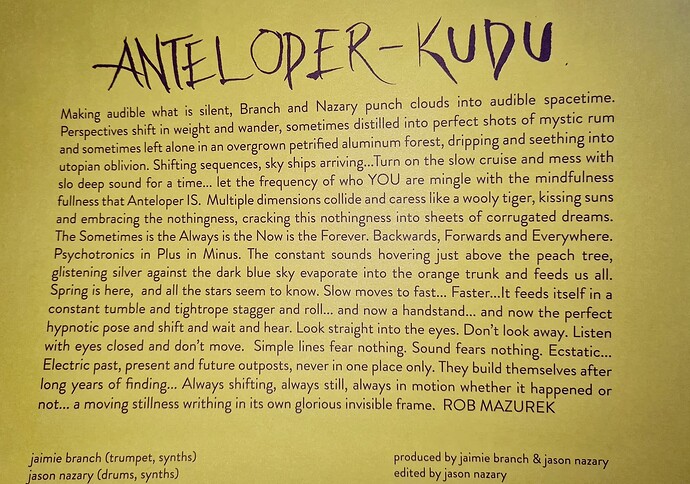 ANTELOPER-KUDU.
Making audible what is silent, Branch and Nazary punch clouds into audible spacetime.
Perspectives shift in weight and wander, sometimes distilled into perfect shots of mystic rum
and sometimes left alone in an overgrown petrified aluminum forest, dripping and seething into
utopian oblivion. Shifting sequences, sky ships arriving...Turn on the slow cruise and mess with
slo deep sound for a time... let the frequency of who YOU are mingle with the mindfulness
fullness that Anteloper IS. Multiple dimensions collide and caress like a wooly tiger, kissing suns
and embracing the nothingness, cracking this nothingness into sheets of corrugated dreams.
The Sometimes is the Always is the Now is the Forever. Backwards, Forwards and Everywhere.
Psychotronics in Plus in Minus. The constant sounds hovering just above the peach tree,
glistening silver against the dark blue sky evaporate into the orange trunk and feeds us all.
Spring is here, and all the stars seem to know. Slow moves to fast... Faster...It feeds itself in a
constant tumble and tightrope stagger and roll... and now a handstand... and now the perfect
hypnotic pose and shift and wait and hear. Look straight into the eyes. Don't look away. Listen
with eyes closed and don't move. Simple lines fear nothing. Sound fears nothing. Ecstatic...
Electric past, present and future outposts, never in one place only. They build themselves after
long years of finding... Always shifting, always still, always in motion whether it happened or
not... a moving stillness writhing in its own glorious invisible frame. ROB MAZUREK
jaimie branch (trumpet, synths)
jason nazary (drums, synths)
produced by jaimie branch & jason nazary
edited by jason nazary